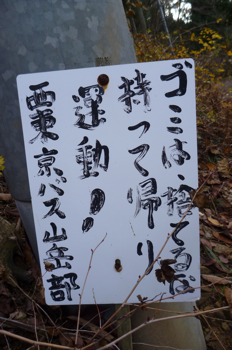 ゴミは、捨てるな
持って帰り
運動！
西東京バス山岳部